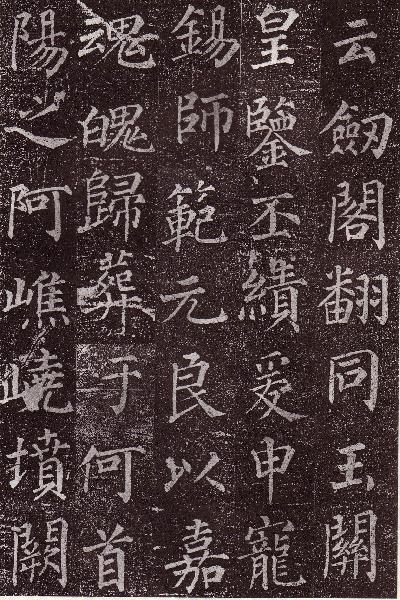 云劔閣翻同玉關
皇鑒丕績爰申寵
錫師範元良以嘉
魂魄歸葬于何首
陽之阿嶕嶢墳闕